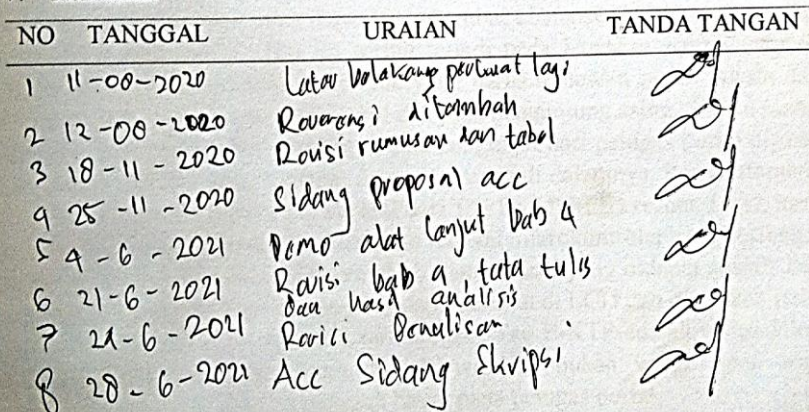 NO TANGGAL URAIAN TANDA TANGAN
1 11-08-2020 Latar belakang perkuat lagi
2 12-08-2020 Referensi ditambah
3 18-11-2020 Revisi rumusan dan tabel
4 25-11-2020 Sidang proposal acc
5 4-6-2021 Demo alat lanjut bab 4
6 21-6-2021 Revisi bab 4, tata tulis
dan hasil analisis
7 24-6-2021 Revisi Penulisan
8 28-6-2021 Acc Sidang Skripsi